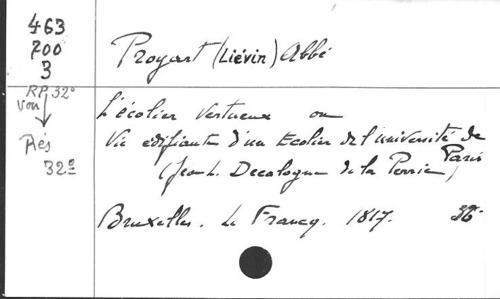 463
700
3
RP 32°
von
Rés
32º
Proyart (Liévin) Abbé
L'écolier vertueux ou
Vie edifiante d'un Ecolier de l'université de
Paris
(Jean L. Decalogne de la Perrie)
Bruxelles. Le Francq. 1817. 36-